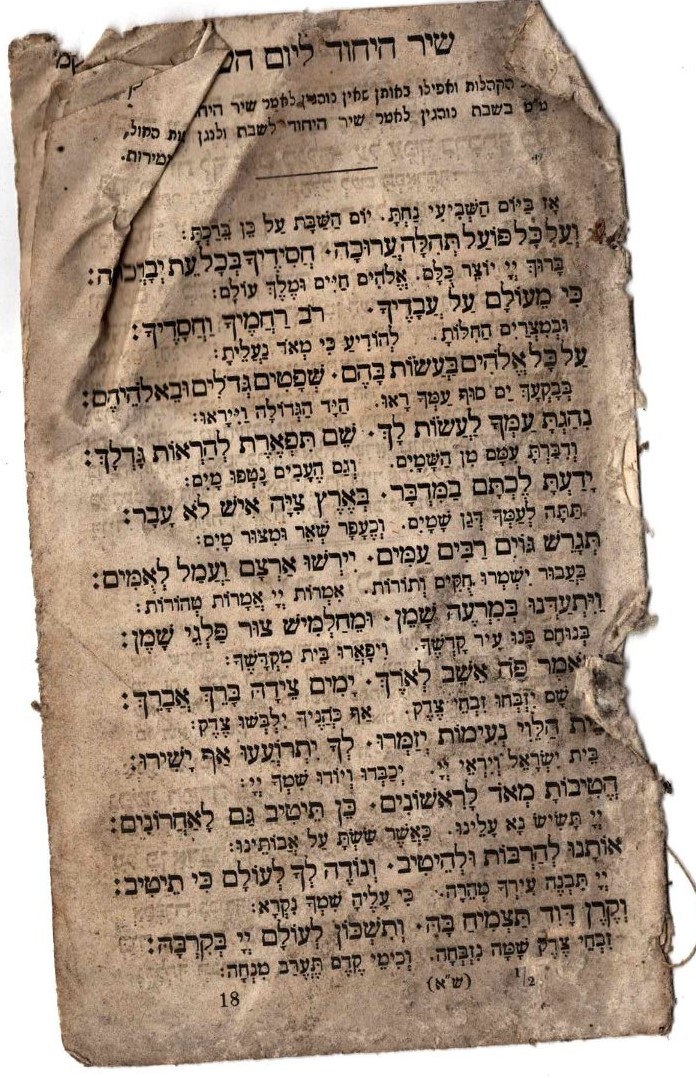 שיר היחוד ליום
הקהלות ואפילו באותן שאין נוהגין לאמר שיר
בשבת נוהגין לאמר שיר היחוד לשבת ולנגן
אָז בַּיּוֹם הַשְּׁבִיעִי נַחְתָּ. יוֹם הַשַּׁבָּת עַל כֵּן בֵּרַכְתָּ:
וְעַל כָּל פּוֹעַל תְּהִלָּה עֲרוּכָה· חֲסִידֶיךָ בְּכָל עֵת
בָּרוּךְ יְיָ יוֹצֵר כֻּלָּם. אֱלֹהִים חַיִּים וּמֶלֶךְ עוֹלָם:
כִּי מֵעוֹלָם עַל עֲבָדֶיךָ· רוֹב רַחֲמֶיךָ וַחֲסָדֶיךָ:
וּבְמִצְרַיִם הַחִלּוֹתָ. לְהוֹדִיעַ כִּי מְאֹד נַעֲלֵיתָ:
עַל כָּל אֱלֹהִים בַּעֲשׂוֹת בָּהֶם· שְׁפָטִים גְּדֹלִים וּבֵאלֹהֵיהֶם:
בְּבָקְעֲךָ יַם סוּף עַמְּךָ רָאוּ. הַיָּד הַגְּדוֹלָה וַיִּירָאוּ:
נִהַגְתָּ עַמְּךָ לַעֲשׂוֹת לָךְ· שֵׁם תִּפְאֶרֶת לְהַרְאוֹת גָּדְלָךְ:
וְדִבַּרְתָּ עִמָּם מִן הַשָּׁמָיִם. וְגַם הֶעָבִים נָטְפוּ מָיִם:
יָדַעְתָּ לֶכְתָּם בַּמִּדְבָּר· בְּאֶרֶץ צִיָּה אִישׁ לֹא עָבָר:
תַּתָּה לְעַמְּךָ דְּגַן שָׁמַיִם. וְכֶעָפָר שְׁאֵר וּמִצּוּר מָיִם:
תְּגָרֵשׁ גּוֹיִם רַבִּים עַמִּים· יִירְשׁוּ אַרְצָם וַעֲמַל לְאֻמִּים:
בַּעֲבוּר יִשְׁמְרוּ חֻקִּים וְתוֹרוֹת. אִמְרוֹת יְיָ אֲמָרוֹת טְהוֹרוֹת:
וַיִּתְעַדְּנוּ בְּמִרְעֶה שָׁמֵן· וּמֵחַלְמִישׁ צוּר פַּלְגֵי שָׁמֶן:
בְּנוּחָם בָּנוּ עִיר קָדְשֶׁךָ. וַיְפָאֲרוּ בֵּית מִקְדָּשֶׁךָ:
פֹּה אֵשֵׁב לְאֹרֶךְ· יָמִים צֵידָהּ בָּרֵךְ אֲבָרֵךְ:
שָׁם יִזְבְּחוּ זִבְחֵי צֶדֶק. אַף כֹּהֲנֶיךָ יִלְבְּשׁוּ צֶדֶק:
הַלֵּוִי נְעִימוֹת יְזַמֵּרוּ· לְךָ יִתְרוֹעֲעוּ אַף יָשִׁירוּ:
בֵּית יִשְׂרָאֵל וְיִרְאֵי יְיָ. יְכַבְּדוּ וְיוֹדוּ שִׁמְךָ יְיָ:
הֱטִיבוֹתָ מְאֹד לָרִאשׁוֹנִים· כֵּן תֵּיטִיב גַּם לָאַחֲרוֹנִים:
יְיָ תָּשִׂישׂ נָא עָלֵינוּ. כַּאֲשֶׁר שַׂשְׂתָּ עַל אֲבוֹתֵינוּ:
אוֹתָנוּ לְהַרְבּוֹת וּלְהֵיטִיב· וְנוֹדֶה לְּךָ לְעוֹלָם כִּי תֵיטִיב:
יְיָ תִּבְנֶה עִירְךָ מְהֵרָה. כִּי עָלֶיהָ שִׁמְךָ נִקְרָא:
וְקֶרֶן דָּוִד תַּצְמִיחַ בָּהּ· וְתִשְׁכּוֹן לְעוֹלָם יְיָ בְּקִרְבָּהּ:
זִבְחֵי צֶדֶק שָׁמָּה נִזְבָּחָה. וְכִימֵי קֶדֶם תֶּעֱרַב מִנְחָה:
1/2 (ש"א) 18